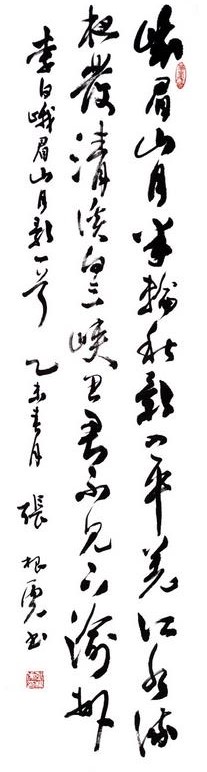 峨眉山月半輪秋影入平羌江水流
夜發清溪向三峽思君不見下渝州
李白峨眉山月歌一首 乙未春月 張根虎書